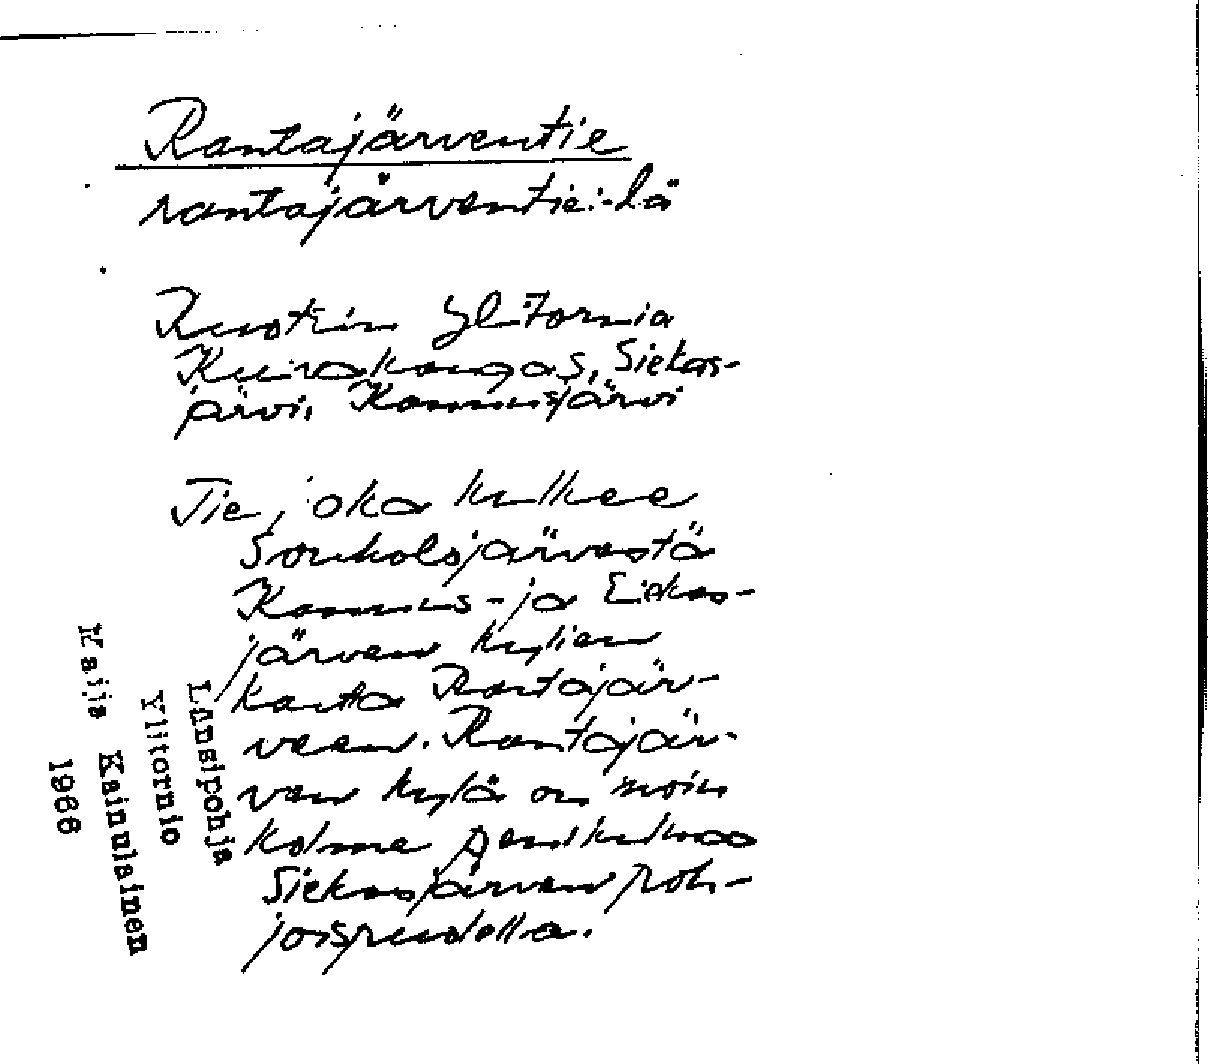 Rantajärventie
rantajärventie:-lä
Ruotsin Ylitornia
Kuivakangas, Siekas-
järvi, Kannusjärvi
Tie, joka kulkee
Soukolojärvestä
Kannus- ja Siekas-
järven kylien
kautta Rantajär-
veen. Rantajär-
ven kylä on noin
kolme penikulmaa
Siekasjärven poh-
joispuolella.
Länsipohja
Ylitornio
Maija Kainulainen
1966